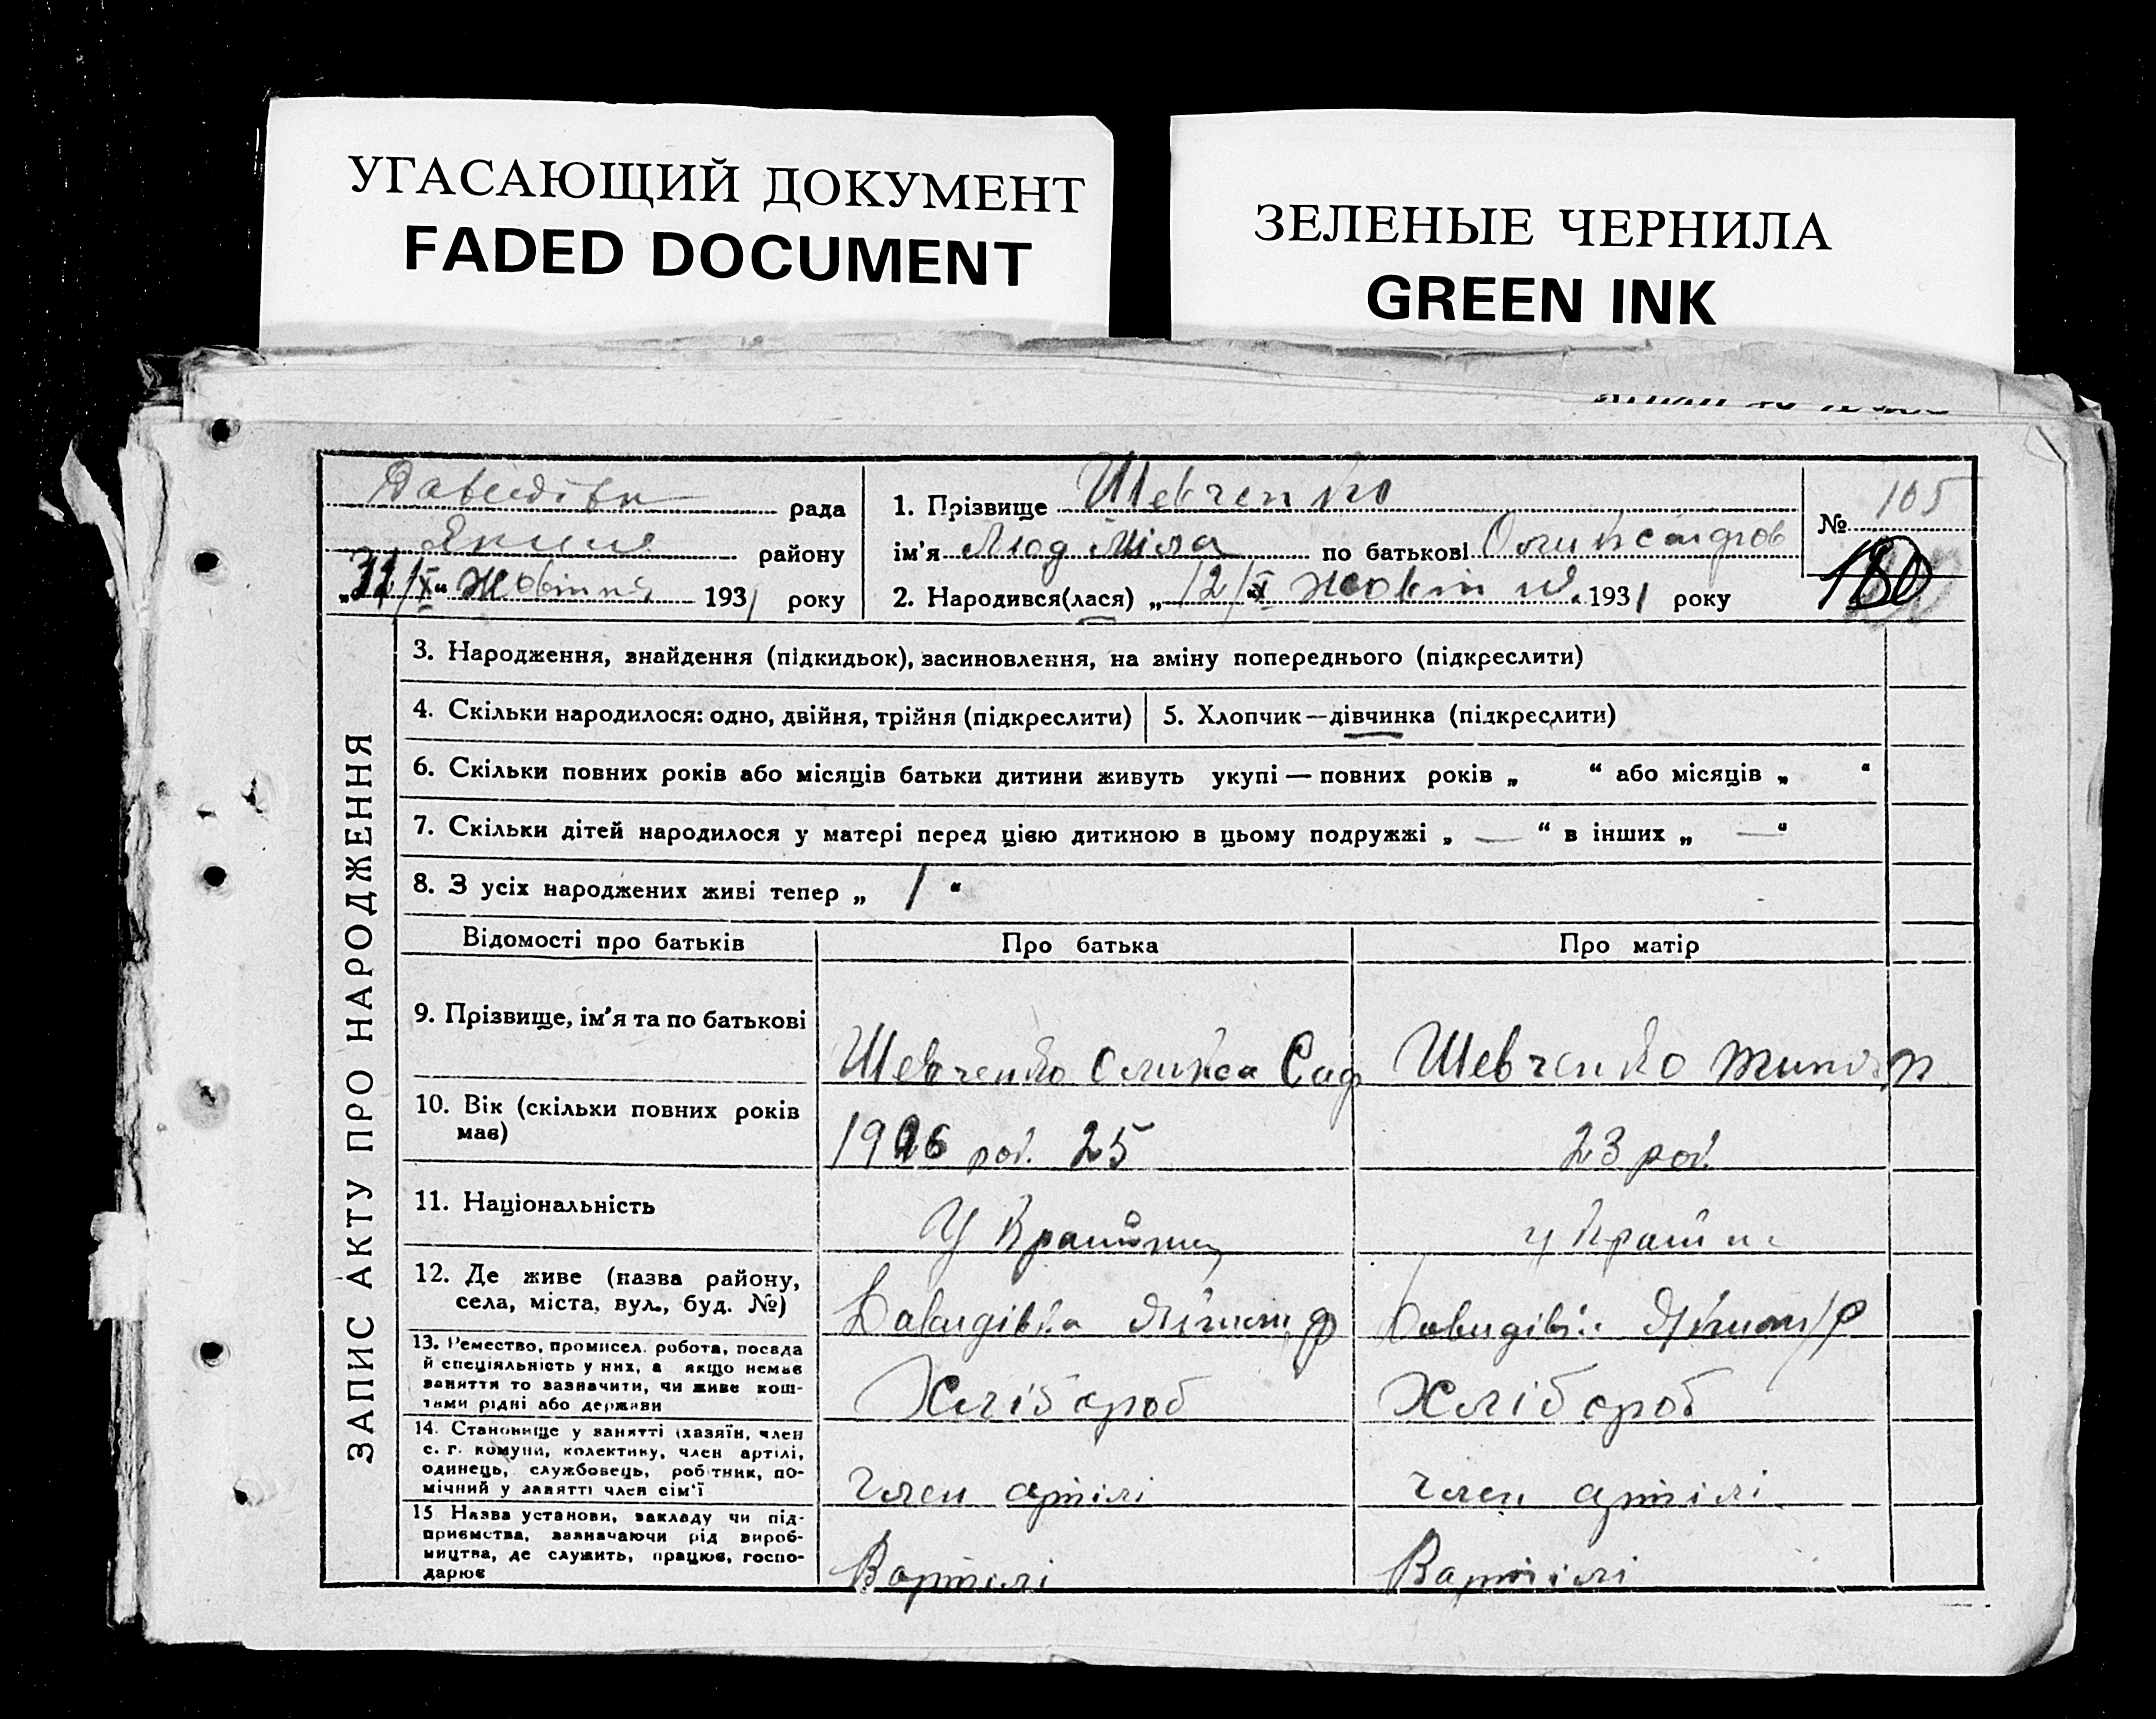 УГАСАЮЩИЙ ДОКУМЕНТ
FADED DOCUMENT
ЗЕЛЕНЫЕ ЧЕРНИЛА
GREEN INK
рада
району
Жовтня 1931 року
1. Прізвище Шевченко
ім'я Людміла по батькові Олександров
2. Народився(лася) „12/X" Жовтня 1931 року
№ 105
180
ЗАПИС АКТУ ПРО НАРОДЖЕННЯ
3. Народження, знайдення (підкидьок), засиновлення, на зміну попереднього (підкреслити)
4. Скільки народилося: одно, двійня, трійня (підкреслити)
5. Хлопчик—дівчинка (підкреслити)
6. Скільки повних років або місяців батьки дитини живуть укупі — повних років „ “ або місяців „ “
7. Скільки дітей народилося у матері перед цією дитиною в цьому подружжі „ — “ в інших „ — “
8. З усіх народжених живі тепер „ 1 “
Відомості про батьків Про батька Про матір
9. Прізвище, ім'я та по батькові
Шевченко Олекса Сид
Шевченко
10. Вік (скільки повних років
має)
1906 рок. 25
23 рок.
11. Національність
Українец
Україн
12. Де живе (назва району,
села, міста, вул., буд. №)
Давидівка
Давидівка
13. Ремество, промисел, робота, посада
й спеціяльність у них, а якщо немає
заняття то зазначити, чи живе кош-
тами рідні або держави
Хлібороб
Хлібороб
14. Становище у занятті (хазяїн, член
с. г. комуни, колективу, член артілі,
одинець, службовець, робітник, по-
мічний у занятті член сім'ї
Член артілі
Член артілі
15 Назва установи, закладу чи під-
приємства, зазначаючи рід вироб-
ництва, де служить, працює, госпо-
дарює
Вартілі
Вартілі